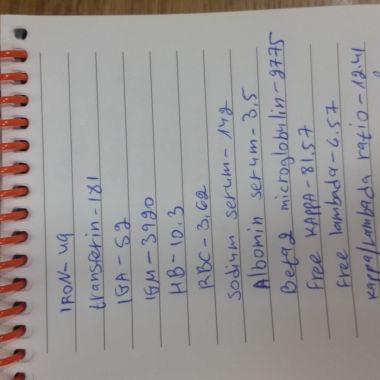 IRON-49
transferin-181
IGA-52
IGM-3920
HB-10.3
RBC-3,62
Sodium serum-142
Albomin serum-3,5
Beta2 microglobulin-2775
Free KAPPA-81,57
Free lambda-6.57
Kappa/lambda ratio-12.41